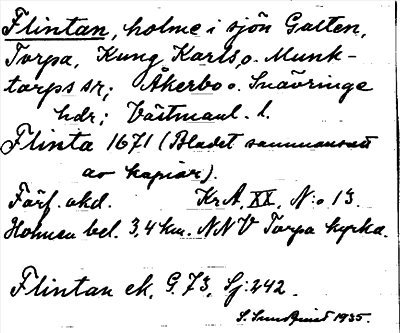 Flintan, holme i sjön Galten,
Torpa, Kung Karls, o. Munk-
tarps sr; Åkerbo o. Snävringe
hdr; Västmanl. l.
Flinta 1671 (Bladet sammansatt
av kapior).
Färf. akd. KrA, XX, N:o 13.
Holmen bel. 3,4 km. NNV Torpa kyrka.
Flintan ek. G. 73, Sj: 242.
1935.